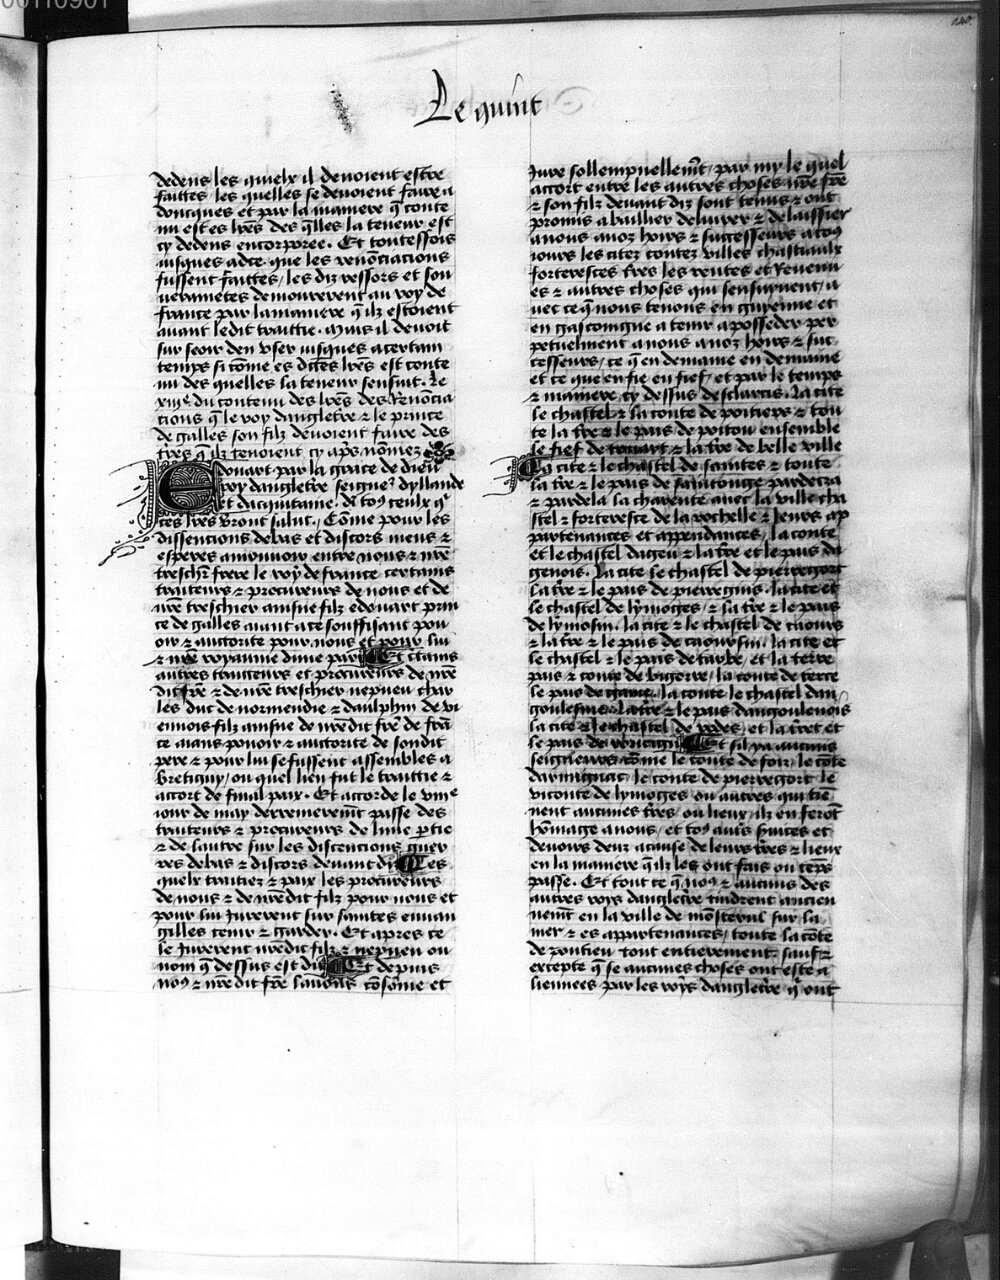 00110901
140
Le quint
dedens les quielx il devoient estre
faittes / les quelles se devoient faire a
doncques et par la maniere q̃ conte
nu est es lrẽs des q̃lles la teneur est
cy dedens encorporee. Et touteffois
iusques adce que les renõciacions
fussent faittes / les diz ressors et sou
verainetes demourerent au roy de
france par la maniere q̃ ilz estoient
avant ledit traittie. Mais il devoit
sur seoir den user iusques a certain
temps si cõme es dittes lrẽs est conte
nu des quelles la teneur sensuit. Le
xiiiᵉ du contenu des lrẽs des renoncia
cions q̃ le roy dangletrẽ ⁊ le prince
de galles son filz devoient faire des
trẽs q̃ ilz tenoient cy aprs̃ nõmez
Edouart par la grace de dieu
roy dangletrẽ seigneʳ dyllande
et dacquitaine. A toꝰ ceulx qⁱ
ces lrẽs verront salut. Cõme pour les
dissencions debas et discors meus ⁊
esperes amouvoir entre nous ⁊ nr̃e
treschr̃ frere le roy de france certains
traiteurs ⁊ procureurs de nous et de
nr̃e treschier ainsne filz edouart prin
ce de galles aiant ace souffisant pou
oir ⁊ auctorite pour nous et pour lui
⁊ nr̃e royaume dune part Et ctains
autres traiteurs et procureurs de nr̃e
dit frẽ ⁊ de nr̃e treschier nepueu char
les duc de normendie ⁊ daulphin de vi
ennois filz ainsne de nr̃e dit frẽ de frã
ce aians pouoir ⁊ auctorite de son dit
pere ⁊ pour lui se fussent assembles a
Bretigny / ou quel lieu fut le traittie ⁊
accort de final paix. Et accorde le viiiᵉ
iour de may derreinerem̃t passe des
traiteurs ⁊ procureurs de lune ptie
⁊ de lautre sur les discencions guer
res debas ⁊ discors devant diz Les
quelx traitiez ⁊ paix les procureurs
de nous ⁊ de nr̃e dit filz pour nous et
pour lui Jurerent sur saintes euuan
gilles tenir ⁊ garder. Et apres ce
le Jurerent nr̃e dit filz ⁊ nepueu ou
nom q̃ dessus est dit Et depuis
noꝰ ⁊ nr̃e dit frẽ lavons cõsome et
Jure sollempnellem̃t / par my le quel
accort entre les autres choses nr̃e frẽ
⁊ son filz devant diz sont tenus ⁊ ont
promis a baillier delivrer ⁊ delaissier
a nous a noz hoirs ⁊ successeurs a toꝰ
iours les citez contez villes chastiaulx
forteresces trẽs les rentes et Revenu
es ⁊ autres choses qui sensuyvent / a
vec ce q̃ nous tenons en guyenne et
en gascoingne a tenir a posseder per
petuelment a nous a noz hoirs ⁊ suc
cesseurs / ce q̃ en demaine en demaine
et ce que en fie en fief / et par le temps
⁊ maniere cy dessus desclarcis. La cite
le chastel ⁊ la conte de poitiers ⁊ tou
te la trẽ ⁊ le pais de poitou ensemble
le fief de touart ⁊ la trẽ de belle ville
La cite ⁊ le chastel de saintes ⁊ toute
la trẽ ⁊ le pais de saintonge pardeca
⁊ pardela la charente avec la ville cha
stel ⁊ forteresce de la rochelle ⁊ leurs ap
partenances et appendances. La conte
et le chastel dagen ⁊ la trẽ et le pais da
genois. La cite le chastel de pierregort
la trẽ ⁊ le pais de pierregins. La cite et
le chastel de lymoges / ⁊ la trẽ ⁊ le pais
de lymosin. La cite ⁊ le chastel de caours
⁊ la trẽ ⁊ le pais de caoursin. La cite et
le chastel ⁊ le pais de tarbe / et la terre
pais ⁊ conte de bigorre / la conte de terre
le pais de gaure. La conte le chastel dan
goulesme. La trẽ ⁊ le pais dangoulenois
la cite ⁊ le chastel de rodes / et la trẽ et
le pais de rouergue Et sil ya aucuns
seigneurs cõme le conte de foix / le cõte
darmignac / le conte de pierregort le
viconte de lymoges ou autres qui tie
nent aucunes trẽs ou lieux / ilz en feront
hõmage a nous / et toꝰ autrs̃ services et
devoirs deuz a cause de leurs trẽs ⁊ lieux
en la maniere q̃ ilz les ont fais ou tẽps
passe. Et tout ce q̃ noꝰ ⁊ aucuns des
autres roys dangletrẽ tindrent ancien
nem̃t en la ville de mõsterul sur la
mer ⁊ es appartenances / toute la cõte
de pontieu tout entierement. sauf ⁊
excepte q̃ se aucunes choses ont este a
liennees par les roys dangletrẽ q̃ ont